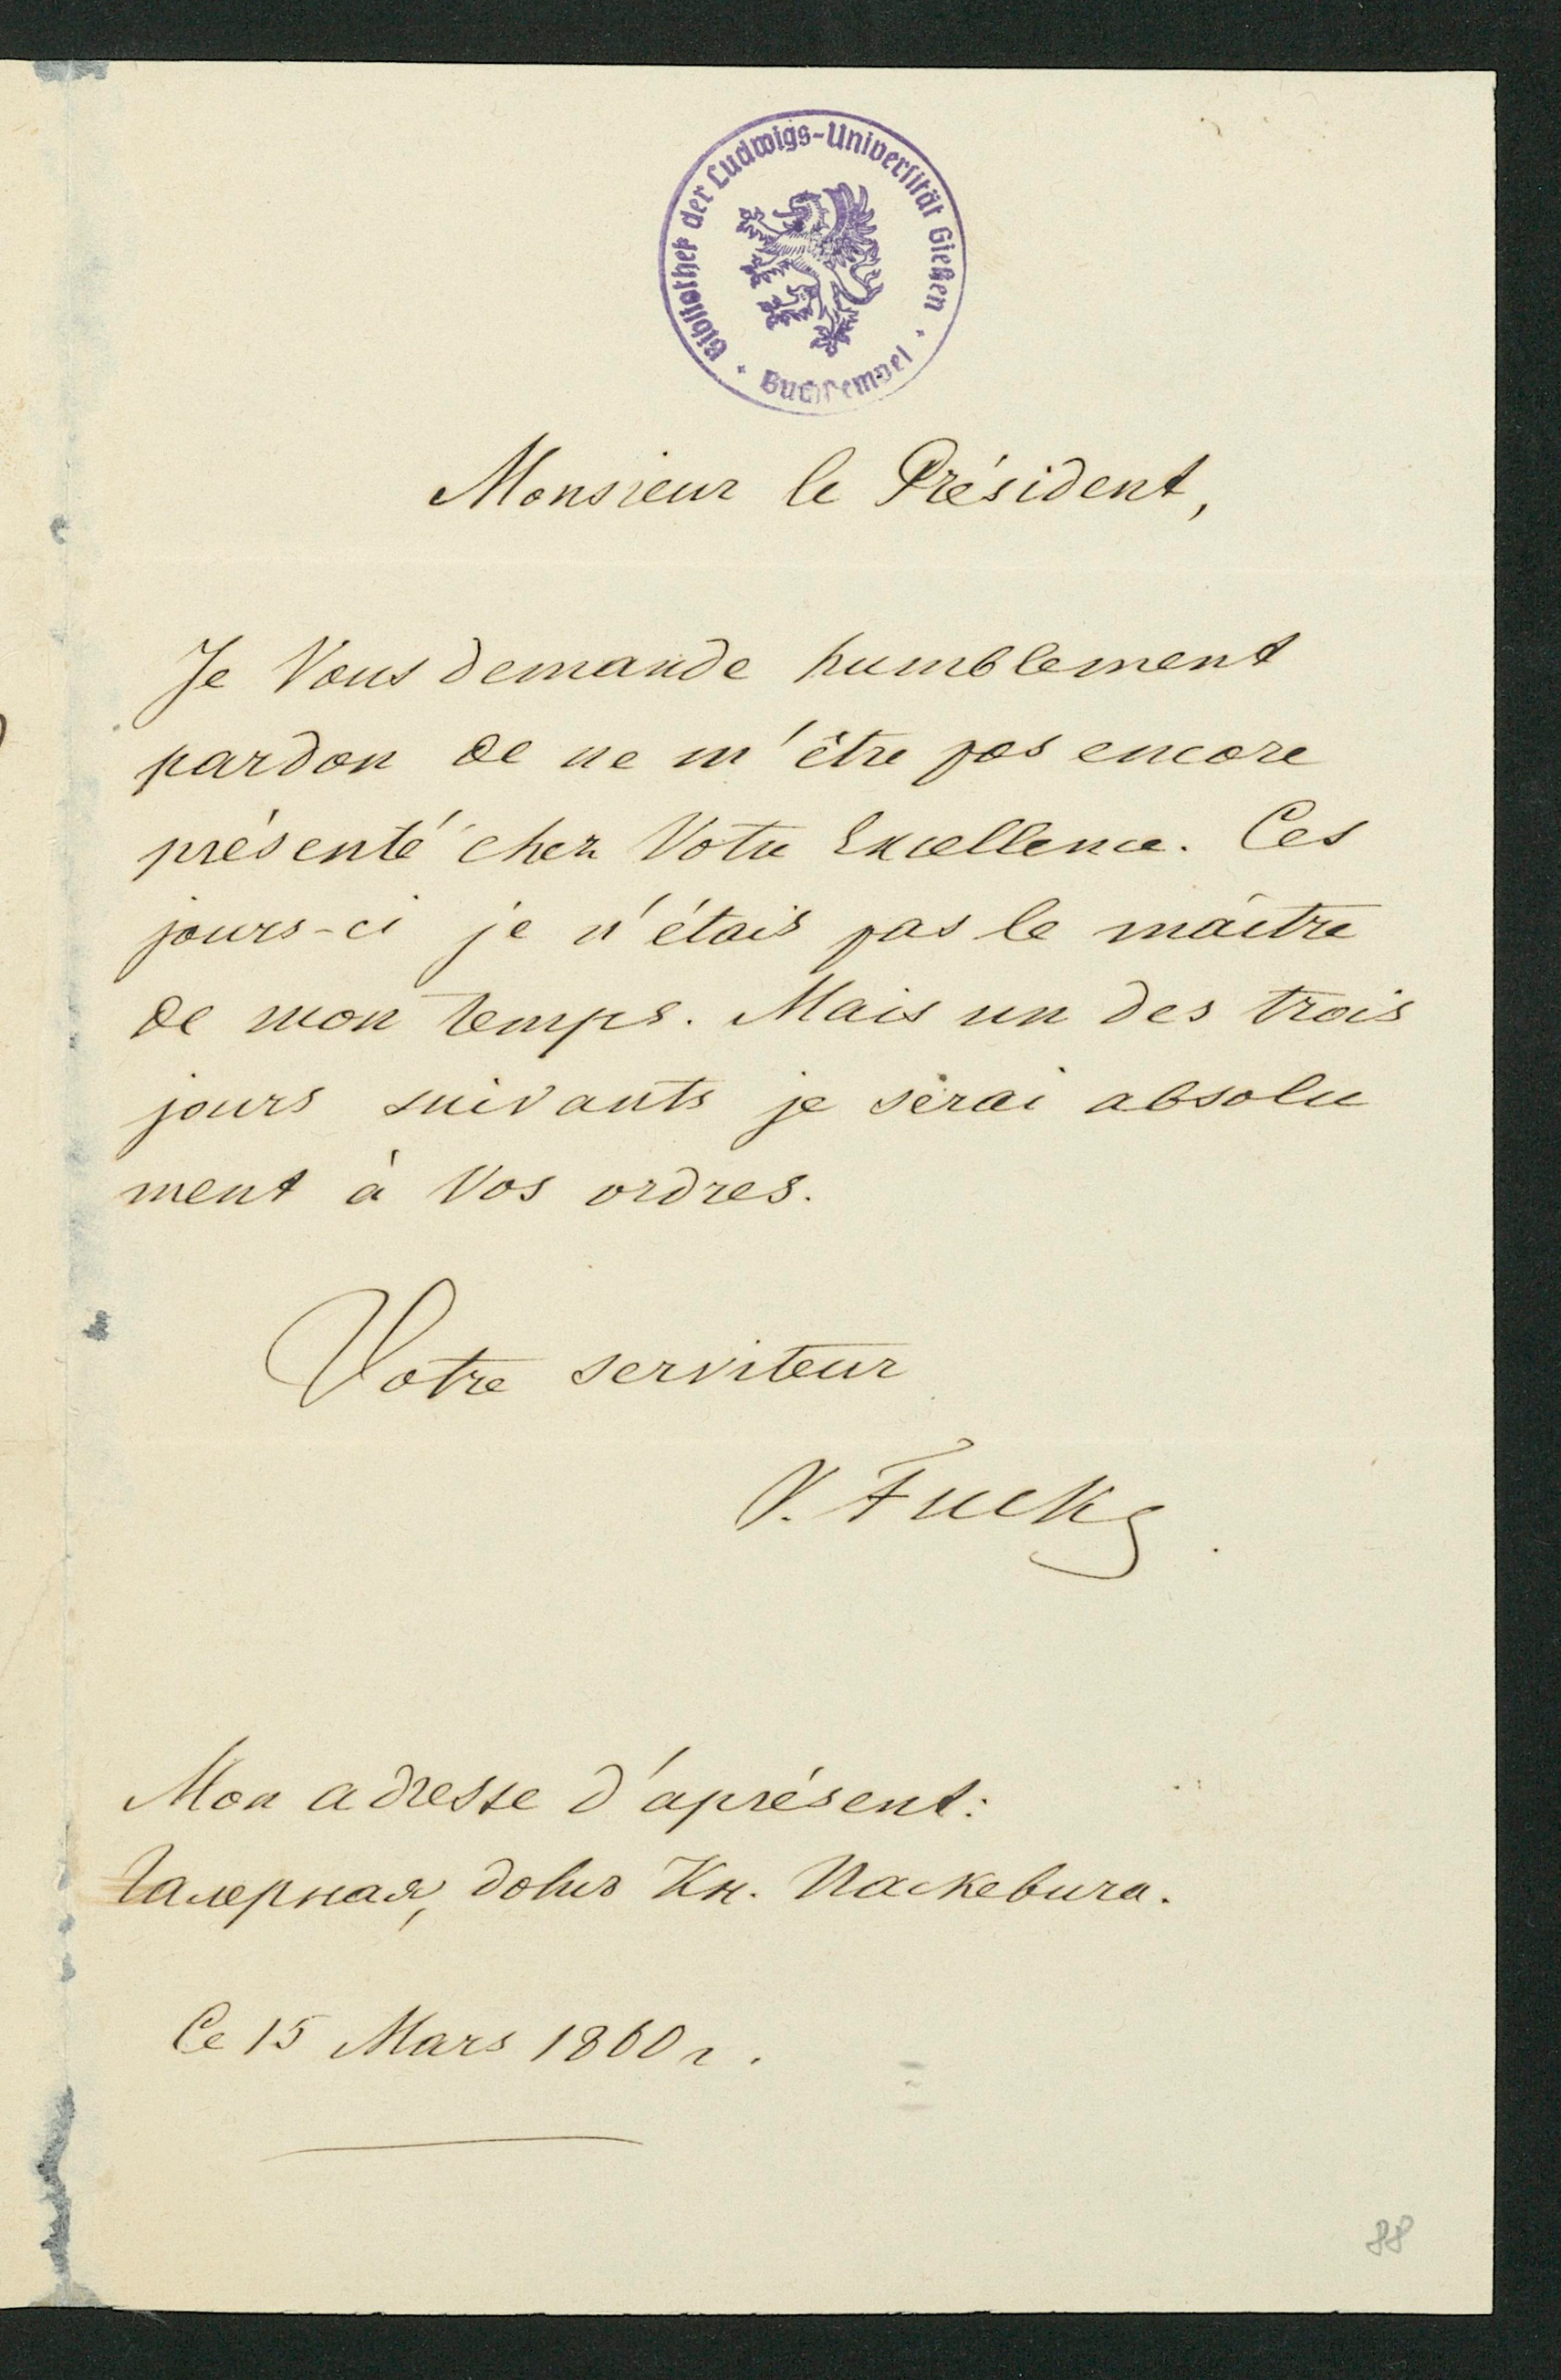 Bibliothek der Ludwigs-Universität Gießen
Buchstempel
Monsieur le Président,
Je Vous demande humblement
pardon de ne m'être pas encore
présenté chez Votre Excellence. Ces
jours-ci je n'étais pas le maître
de mon temps. Mais un des trois
jours suivants je serai absolu
ment à Vos ordres.
Votre serviteur
V. Fucks.
Mon adresse d'aprésent:
Галерная, домъ Кн. Паскевича.
Ce 15 Mars 1860 г.
88